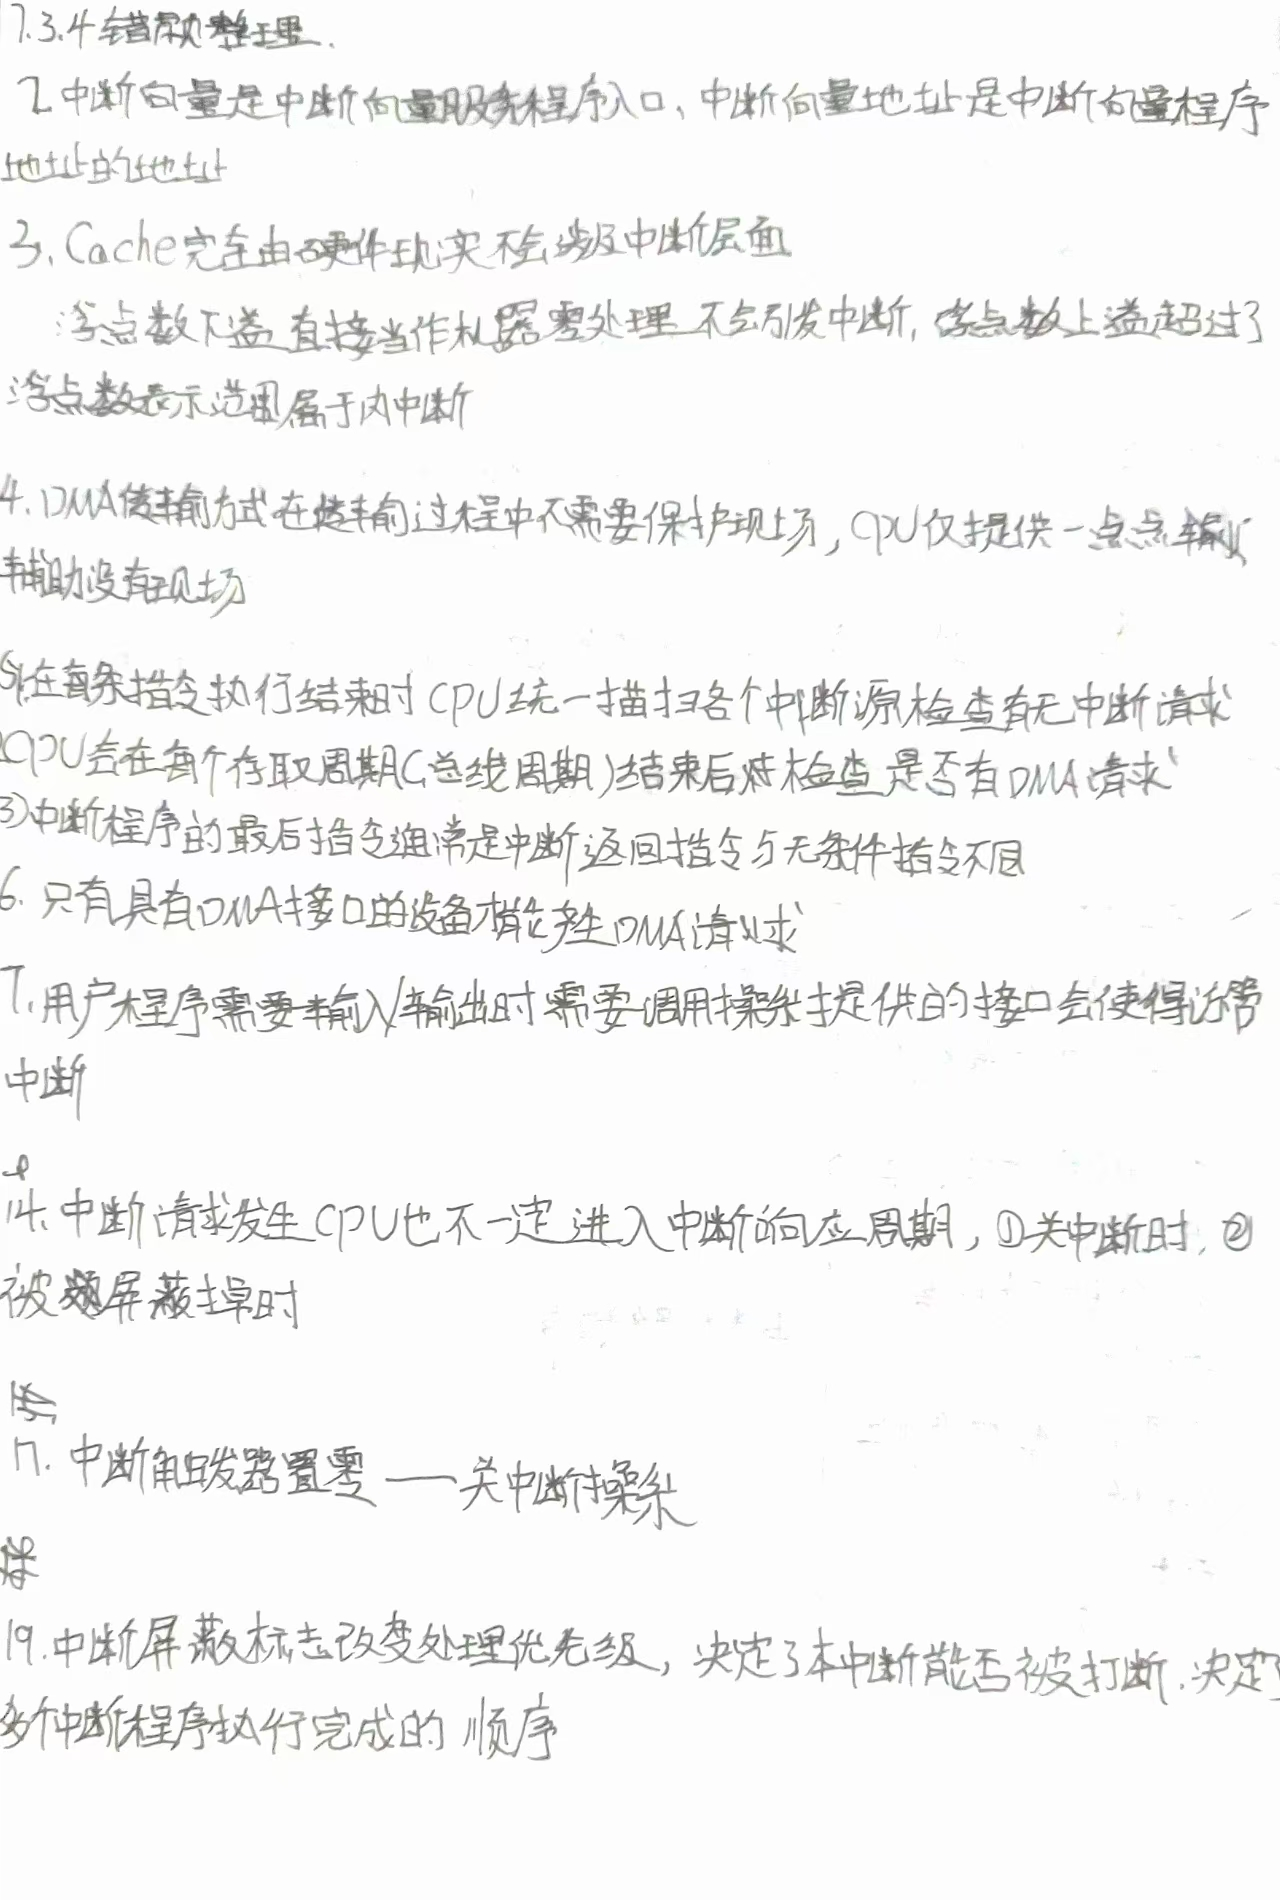 7.3.4错题整理.
2 中断向量是中断向量服务程序入口、中断向量地址是中断向量程序
地址的地址
3. Cache完全由硬件现实 不会涉及中断层面
浮点数下溢直接当作机器零处理 不会引发中断, 浮点数上溢超过了
浮点数表示范围属于内中断
4. DMA传输方式在传输过程中不需要保护现场, CPU仅提供一点点输
辅助没有现场
5.在每条指令执行结束时 CPU统一描扫各个中断源检查有无中断请求
CPU会在每个存取周期(总线周期)结束后 检查是否有DMA请求
③中断程序的最后指令通常是中断返回指令与无条件指令不同
6. 只有具有DMA接口的设备才能产生DMA请求
7. 用户程序需要输入/输出时需要调用操系提供的接口会使得访管
中断
14. 中断请求发生CPU也不一定进入中断响应周期, ①关中断时, ②
被屏蔽掉时
17. 中断触发器置零——关中断操系
19. 中断屏蔽标志改变处理优先级, 决定了本中断能否被打断. 决定了
多个中断程序执行完成的 顺序